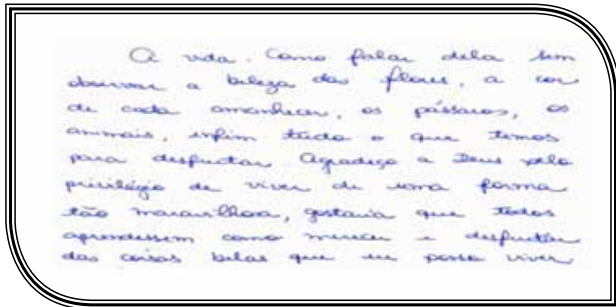 A vida. Como falar dela sem
observar a beleza das flores, a cor
de cada amanhecer, os pássaros, os
animais, enfim tudo o que temos
para desfrutar. Agradeço a Deus pelo
privilégio de viver de uma forma
tão maravilhosa, gostaria que todos
aprendessem como merecer e desfrutar
das coisas belas que eu posso viver